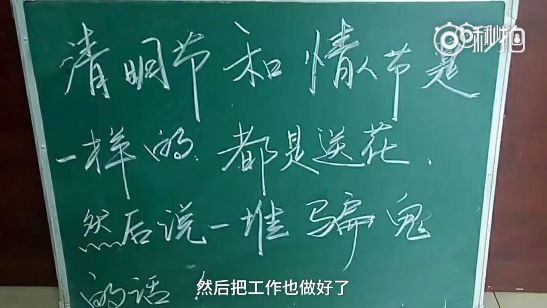 秒拍
清明节和情人节是
一样的.都是送花.
然后说一堆骗鬼
的话！
然后把工作也做好了